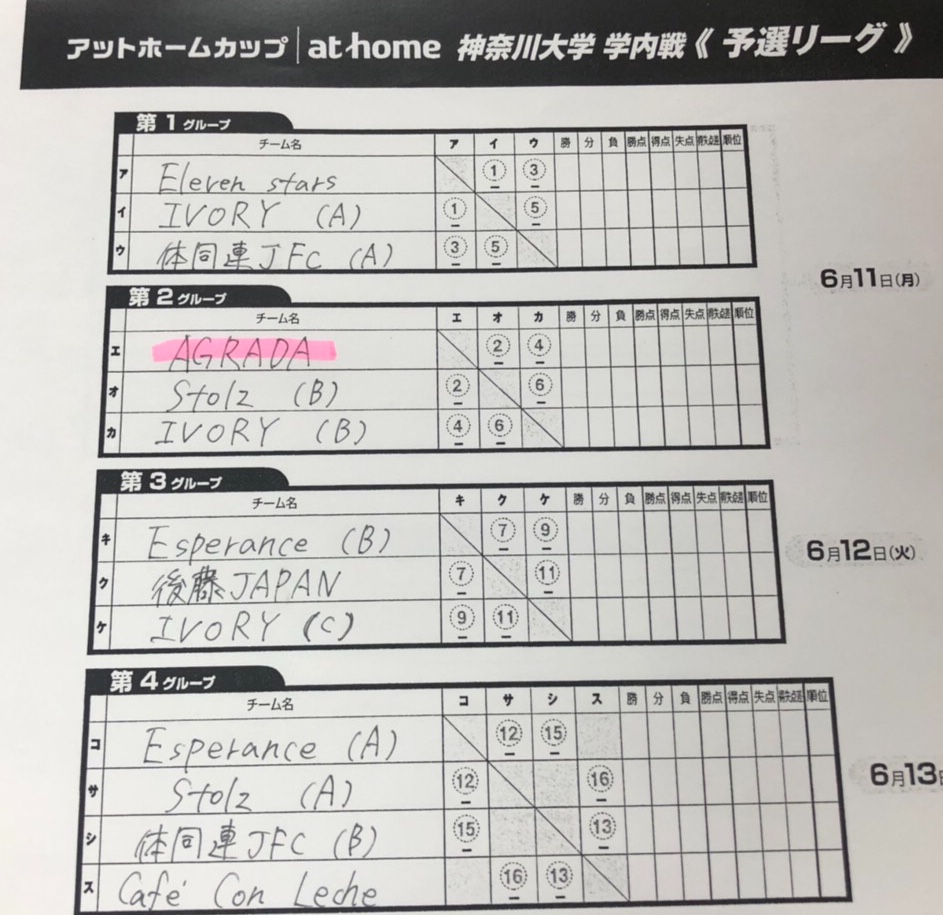 アットホームカップ at home 神奈川大学 学内戦《 予選リーグ 》
第1グループ
チーム名 ア イ ウ 勝 分 負 勝点 得点 失点 得失点差 順位
ア Eleven stars ① ③
イ IVORY (A) ① ⑤
ウ 体同連JFC (A) ③ ⑤
6月11日(月)
第2グループ
チーム名 エ オ カ 勝 分 負 勝点 得点 失点 得失点差 順位
エ AGRADA ② ④
オ Stolz (B) ② ⑥
カ IVORY (B) ④ ⑥
第3グループ
チーム名 キ ク ケ 勝 分 負 勝点 得点 失点 得失点差 順位
キ Esperance (B) ⑦ ⑨
ク 後藤JAPAN ⑦ ⑪
ケ IVORY (C) ⑨ ⑪
6月12日(火)
第4グループ
チーム名 コ サ シ ス 勝 分 負 勝点 得点 失点 得失点差 順位
コ Esperance (A) ⑫ ⑮
サ Stolz (A) ⑫ ⑯
シ 体同連JFC (B) ⑮ ⑬
ス Café Con Leche ⑯ ⑬
6月13日